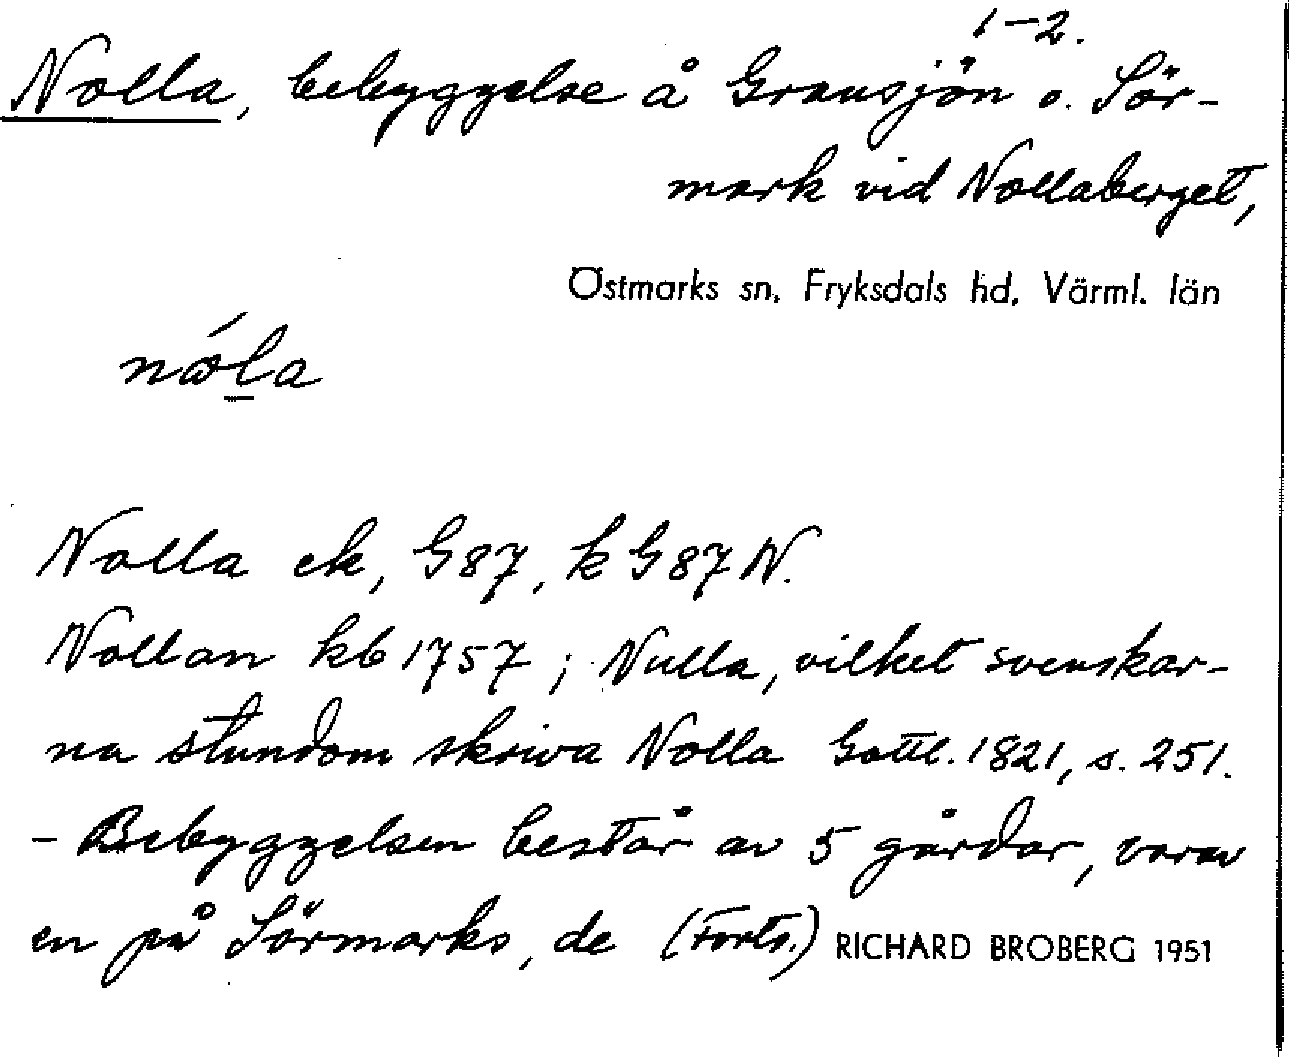 1-2.
Nolla, bebyggelse å Gransjön o. Sör-
mark vid Nollaberget,
Östmarks sn, Fryksdals hd, Värml. län
Nolla ek, G87, k G87 N.
Nollan kb 1757; Nulla, vilket svenskar-
na stundom skriva Nolla Gottl. 1821, s. 251.
- Bebyggelsen består av 5 gårdar, varav
en på Sörmarks, de (Forts.) RICHARD BROBERG 1951